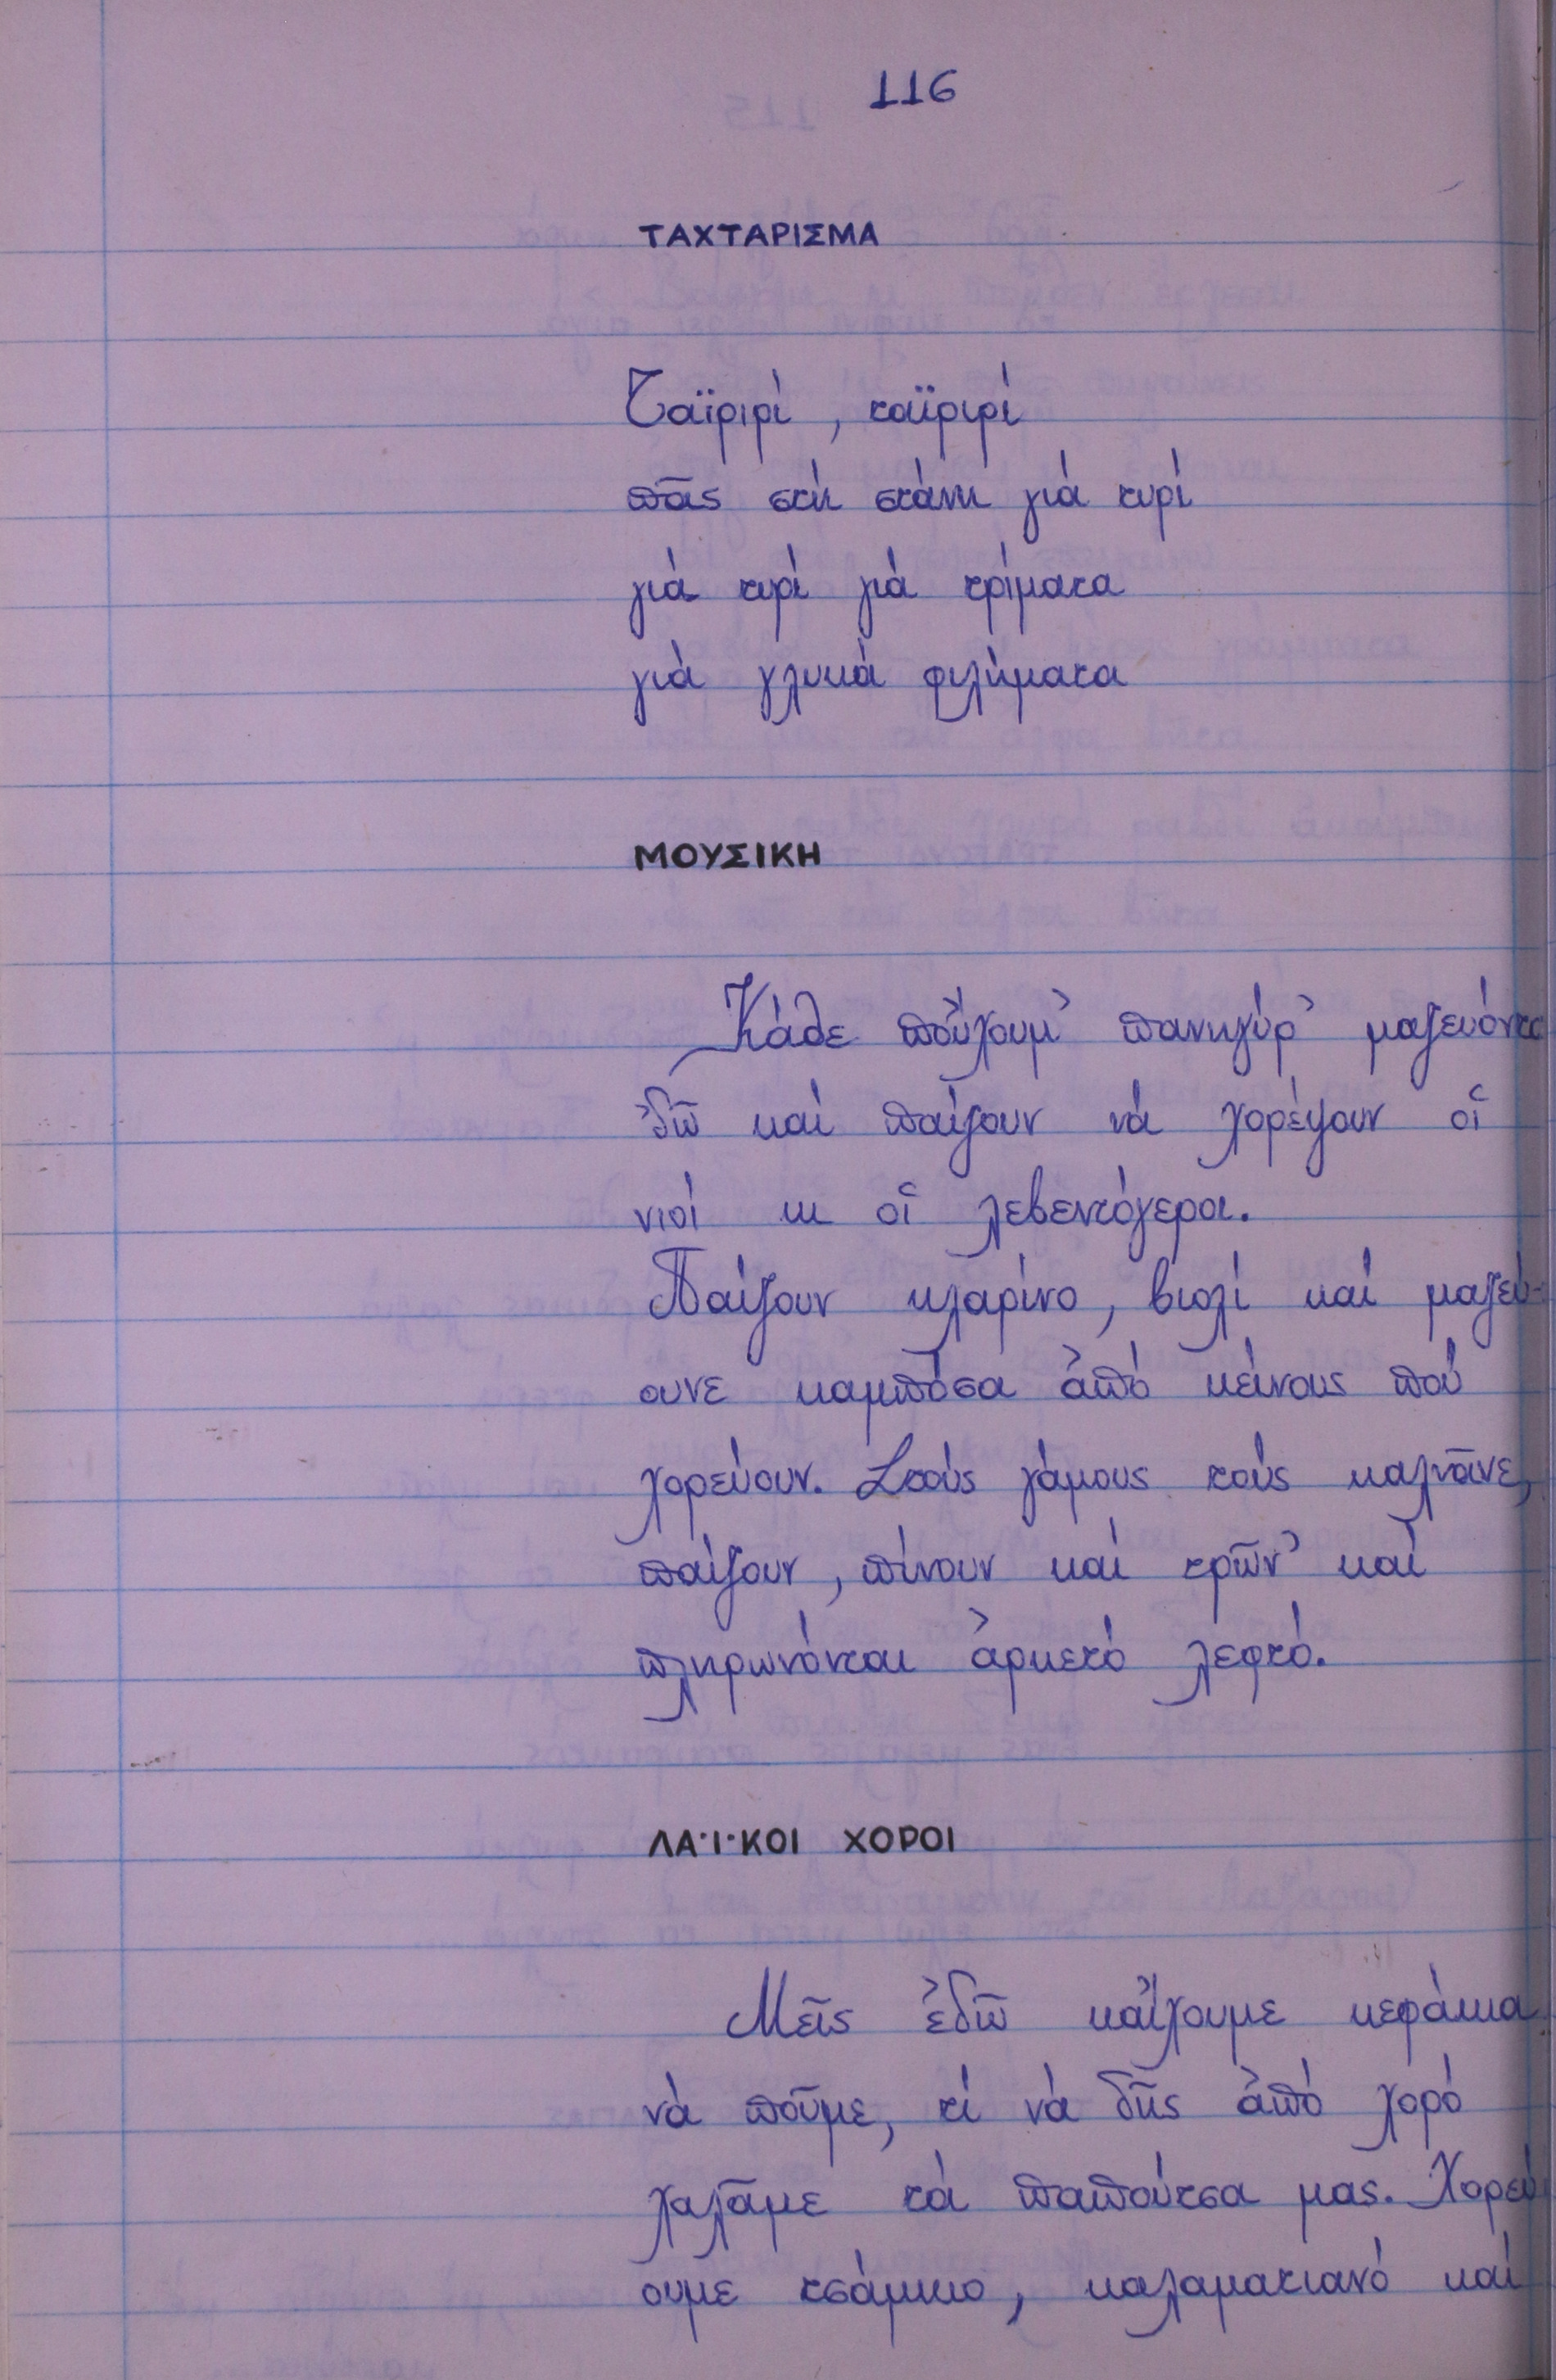 116
ΤΑΧΤΑΡΙΣΜΑ
Ταϊριρί, ταϊριρί
πᾶς στή στάνη γιά τυρί
γιά τυρί γιά τρίματα
γιά γλυκά φιλήματα
ΜΟΥΣΙΚΗ
Κάθε ποὔχουμ' πανηγύρ' μαζευόντα
ἐδῶ καί παίζουν νά χορέψουν οἱ
νιοί κι οἱ λεβεντόγεροι.
Παίζουν κλαρίνο, βιολί καί μαζεύ-
ουνε καμπόσα ἀπό κείνους πού
χορεύουν. Στούς γάμους τούς καλνᾶνε,
παίζουν, πίνουν καί τρῶν' καί
πληρωνόνται ἀρκετό λεφτό.
ΛΑ·Ι·ΚΟΙ ΧΟΡΟΙ
Μεῖς ἐδῶ κἄχουμε κεφάκια
νά ποῦμε, τί νά δῆς ἀπό χορό
χαλᾶμε τά παπούτσα μας. Χορεύ
ουμε τσάμικο, καλαματιανό καί